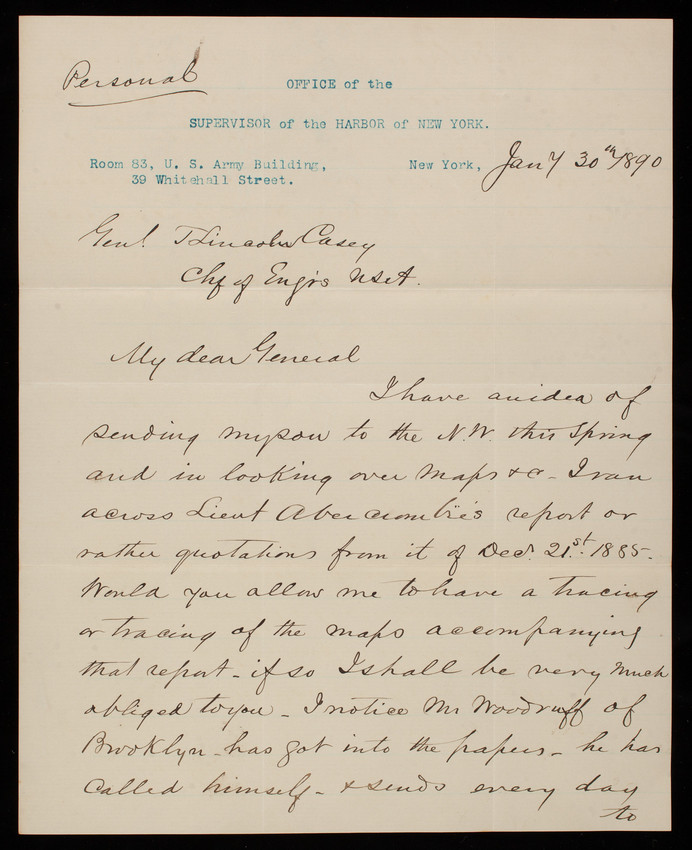 Personal
OFFICE of the
SUPERVISOR of the HARBOR of NEW YORK.
Room 83, U. S. Army Building,
39 Whitehall Street.
New York, Jany 30th 1890
Genl. T Lincoln Casey
Chf of Engrs USA.
My dear General
I have an idea of
sending my son to the N.W. this Spring
and in looking over maps &c - I ran
across Lieut Abercrombie's report or
rather quotations from it of Decr. 21st. 1885.
Would you allow me to have a tracing
or tracing of the maps accompanying
that report - if so I shall be very much
obliged to you - I notice Mr Woodruff of
Brooklyn - has got into the papers - he has
called himself - & sends every day
to